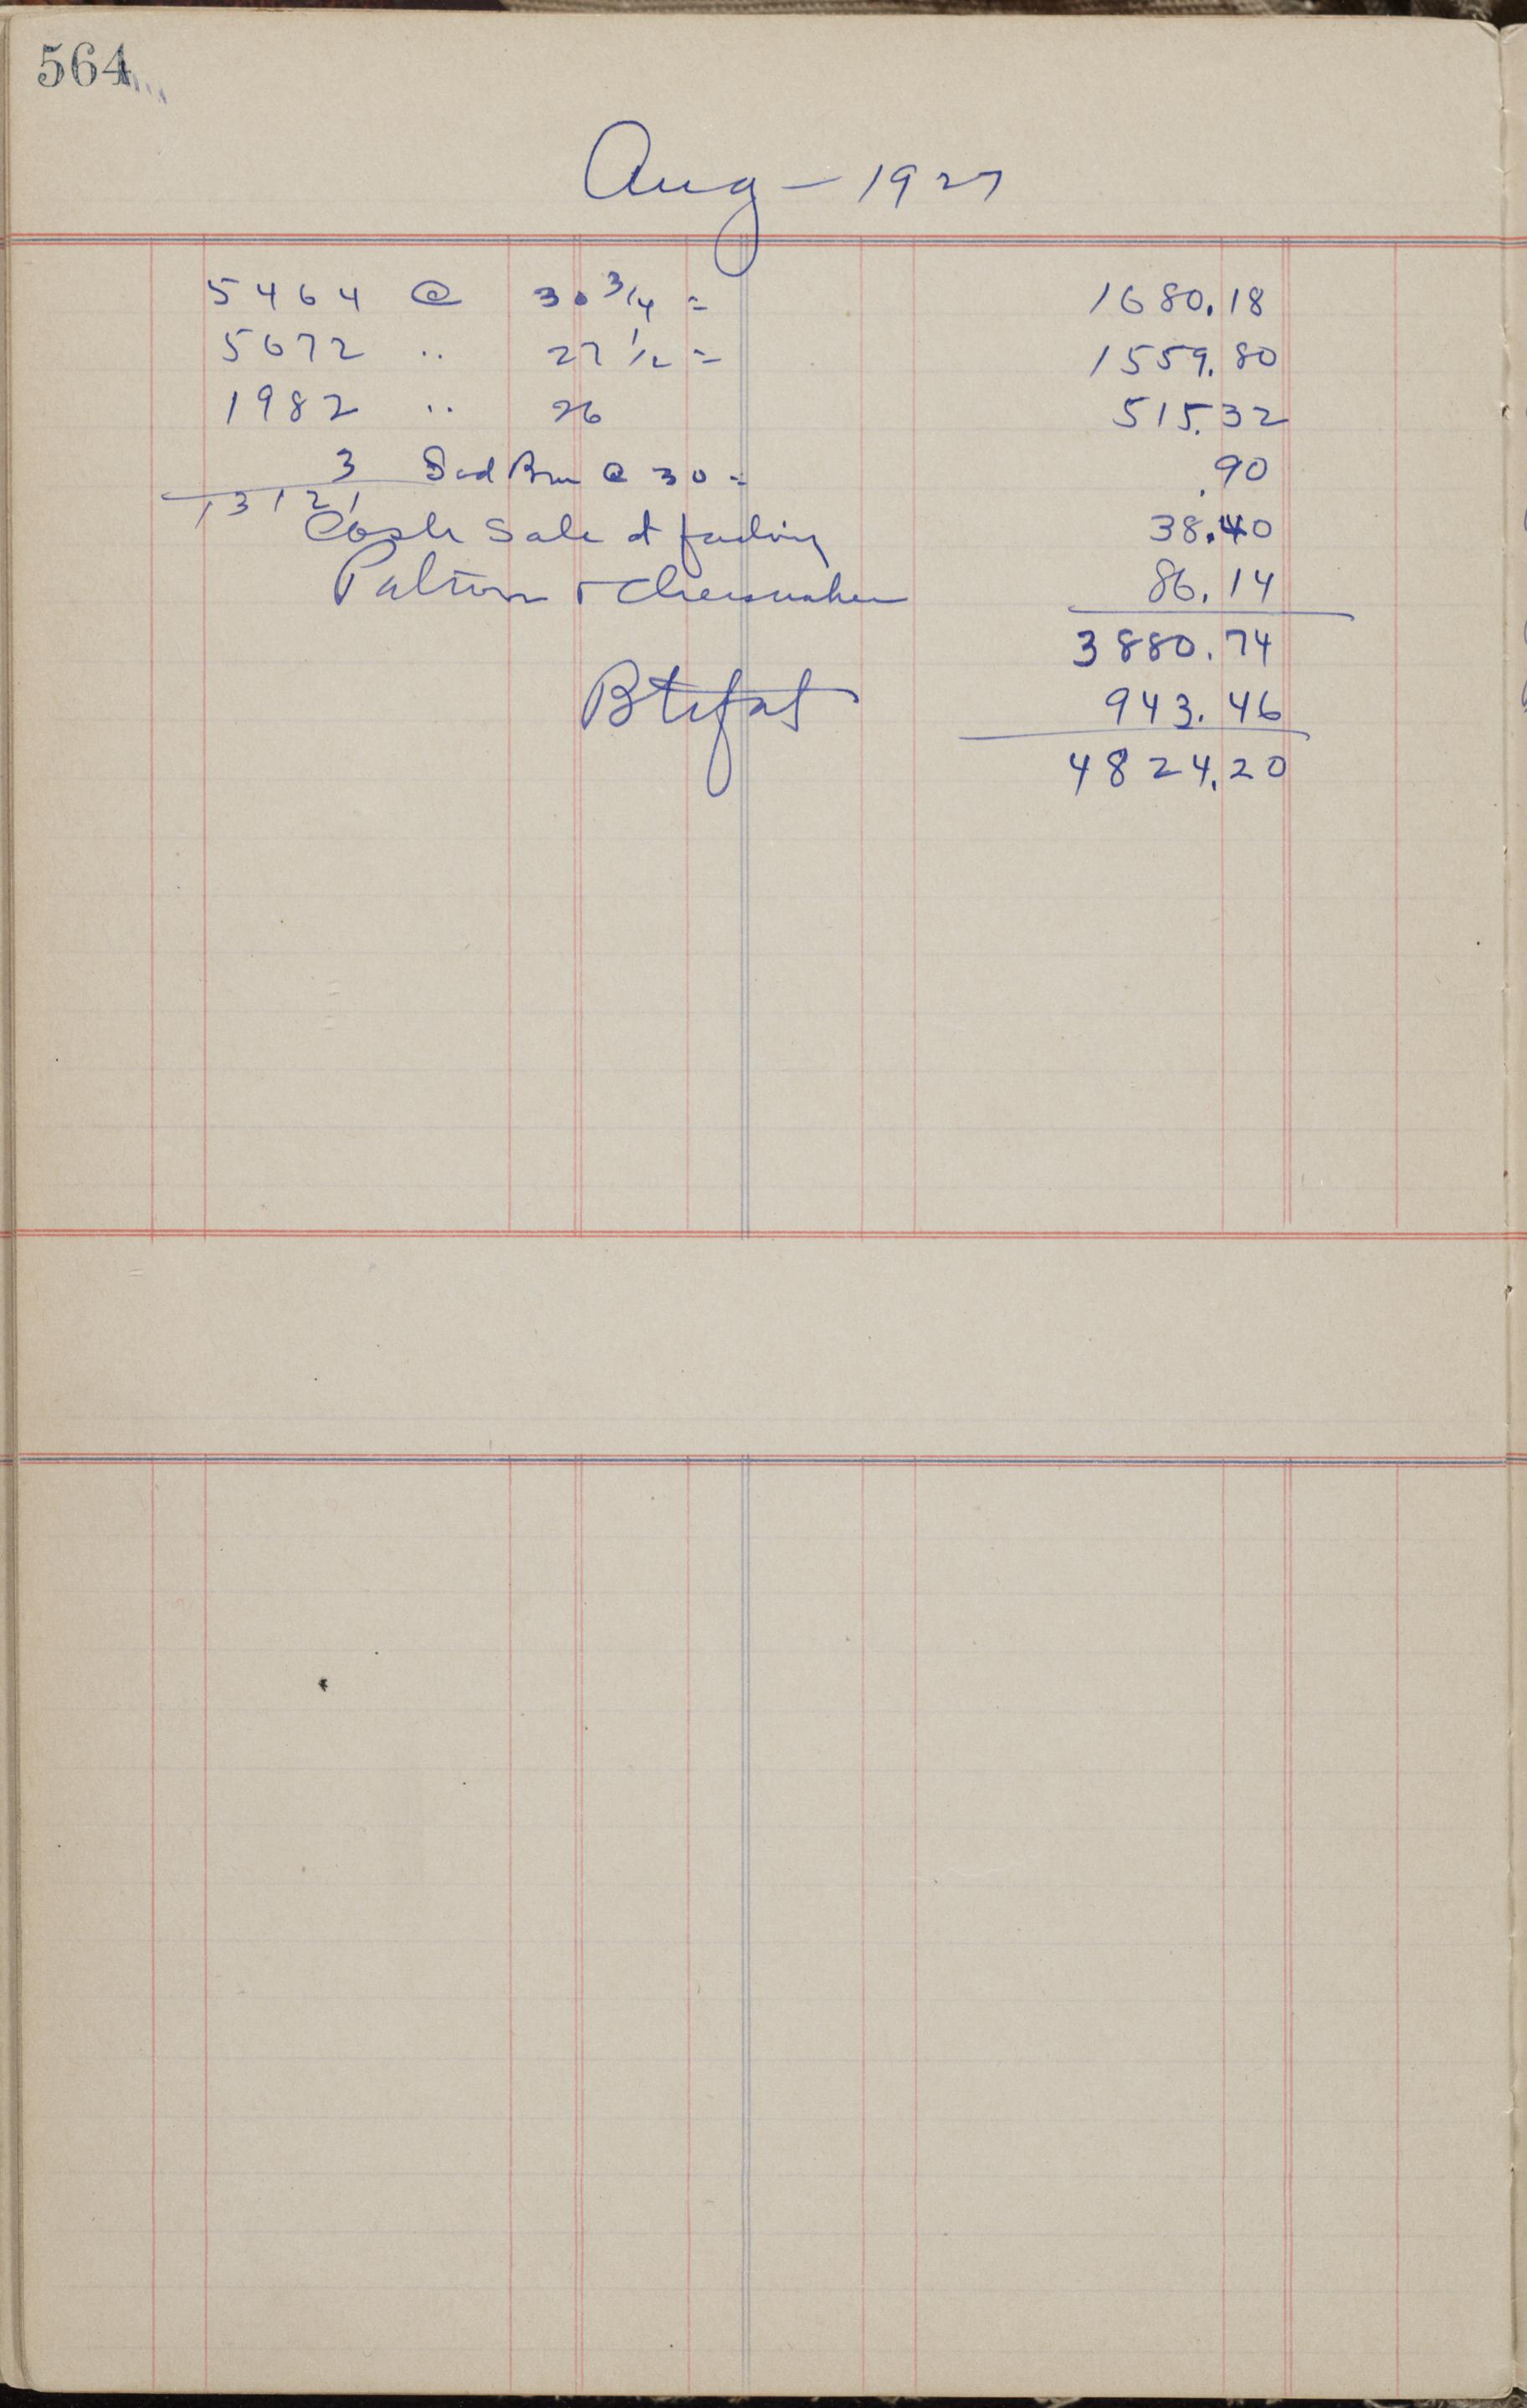 564
Aug - 1927
5464 @ 30 3/4 = 1680.18
5672 .. 27 1/2 = 1559.80
1982 .. 26 515.32
3 @ 30 = .90
13121
Cash Sale at factory 38.40
Patron + Cheesemaker 86.14
3880.74
Btrfat 943.46
4824.20